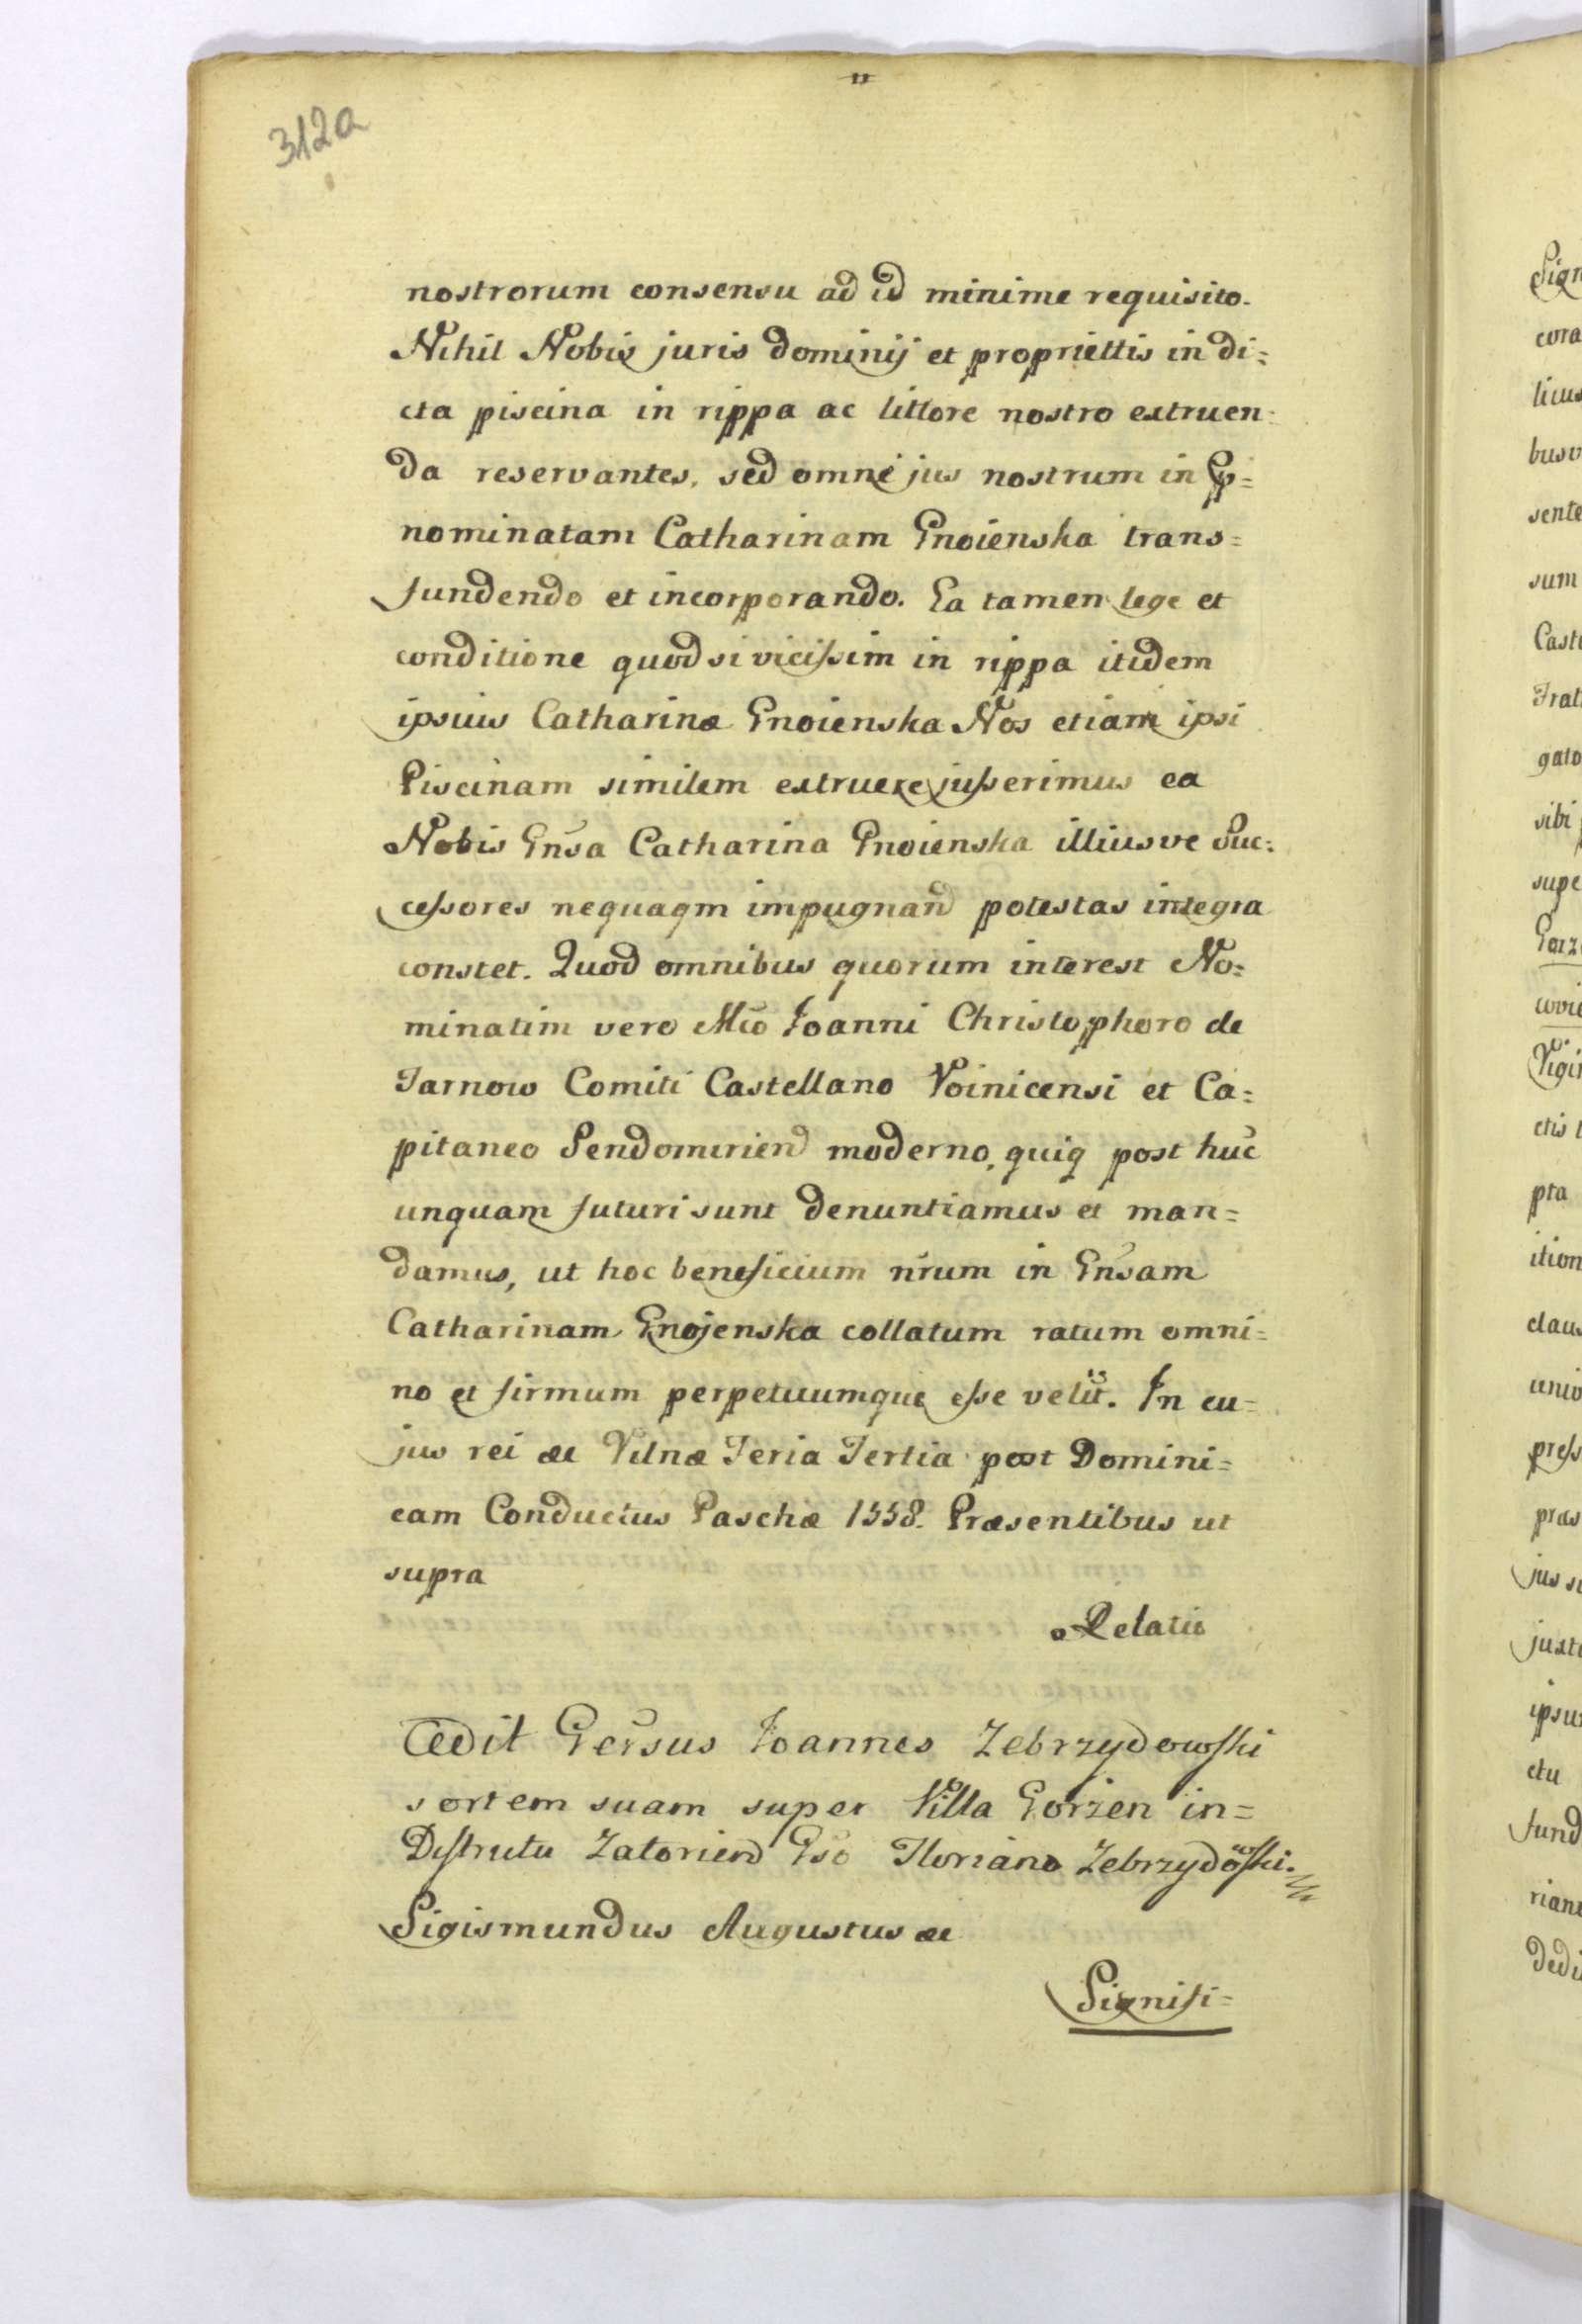 312a
nostrorum consensu ad id minime requisito.
Nihil Nobis juris dominij et propriettis in di=
cta piscina in rippa ac littore nostro extruen=
da reservantes, sed omne jus nostrum in
nominatam Catharinam Gnoienska trans=
fundendo et incorporando. Ea tamen lege et
conditione quod si vicissim in rippa itidem
ipsius Catharinæ Gnoienska Nos etiam ipsi
Piscinam similem extruere jusserimus ea
Nobis Gnsa Catharina Gnoienska illiusve Suc=
cessores nequaqm impugnand potestas integra
constet. Quod omnibus quorum interest No=
minatim vero Mco Joanni Christophoro de
Tarnow Comiti Castellano Voinicensi et Ca=
pitaneo Sendomirien moderno, quiq post huc
unquam futuri sunt denuntiamus et man=
damus, ut hoc beneficium nrum in Gnsam
Catharinam Gnojenska collatum ratum omni=
no et firmum perpetuumque esse velit. In cu=
jus rei &c Vilnæ Feria Tertia post Domini=
cam Conductus Paschæ 1558. Præsentibus ut
supra
Relatio
Cedit Gersus Joannes Zebrzydowski
sortem suam super Villa Gorzen in=
Districtu Zatorien Gso Floriano Zebrzydowski.
Sigismundus Augustus &c
Signifi=
Sign
cora
licus
busv
sente
sum
Caste
Frat
gato
sibi
supe
Gorz
covie
Vigi
ctis
pta
ition
claus
univ
press
præs
jus su
juxt
ipsu
ctu
fund
riano
Dedi